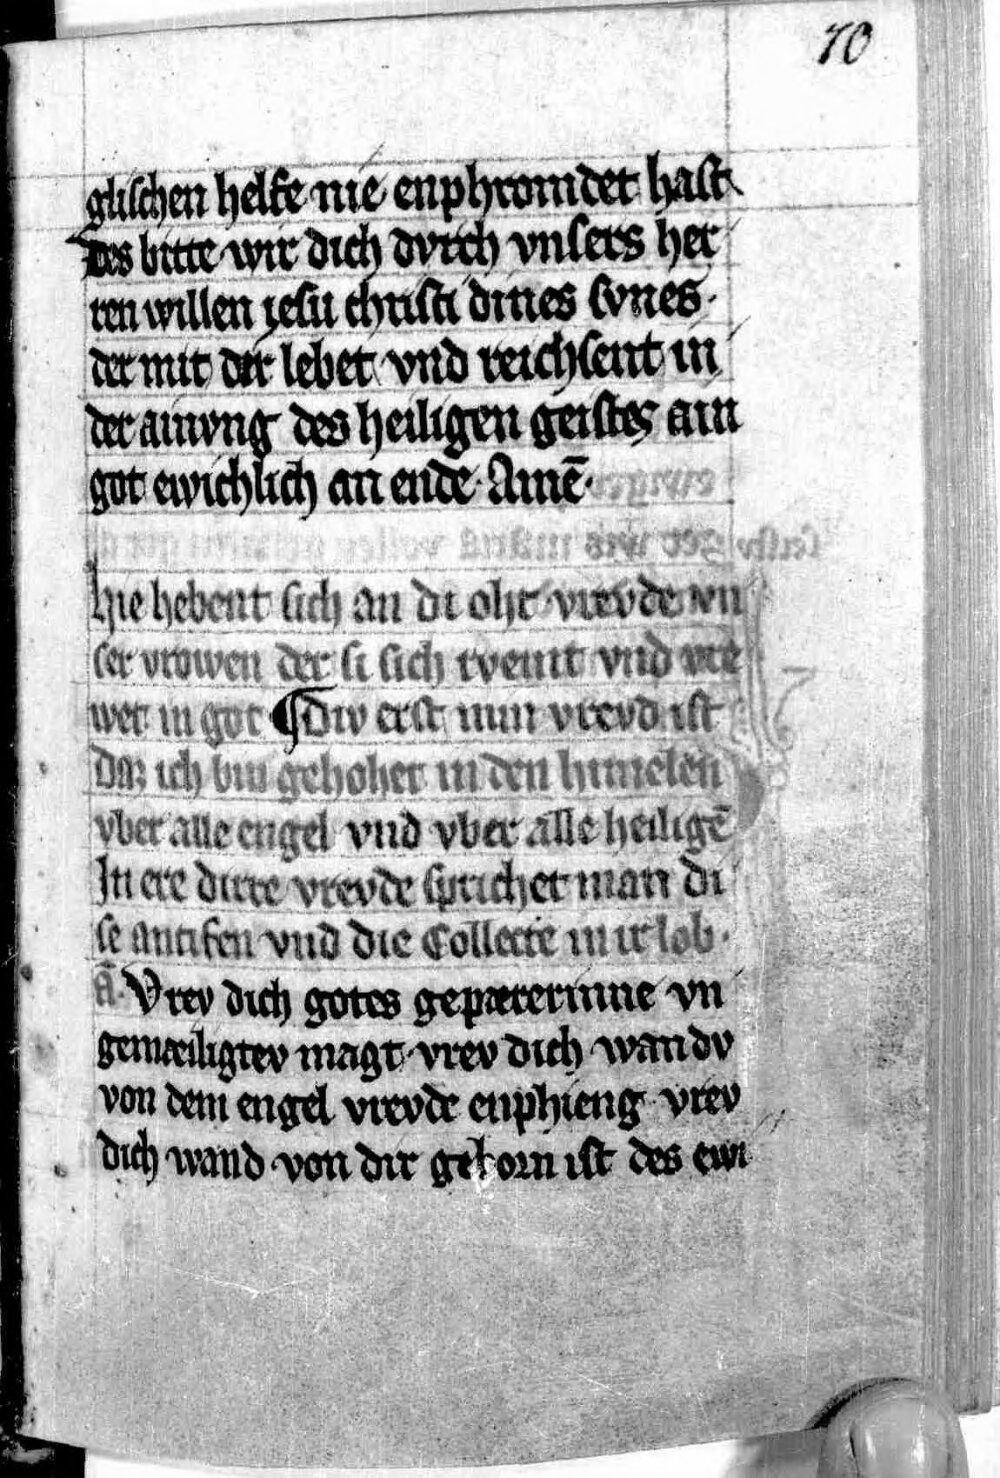 70
glischen helfe nie enphromdet hast
Des bitte wir dich dvrch vnsers her
ren willen iesu christi dines svnes·
der mit dir lebet vnd reichsent in
der ainvng des heiligen geistes ain
got ewichlich an ende· Amē·
hie hebent sich an di oht vrevde vn
ser vrowen der si sich rvemt vnd vre
wet in got ¶ Div erst min vrevd ist
Daz ich bin gehohet in den himelen
vber alle engel vnd vber alle heiligē
In ere dirre vrevde sprichet man di
se antifen vnd die Collecte mir lob·
A· Vrev dich gotes geparerinne vn
gemæiligtev magt· vrev dich wan dv
von dem engel vrevde enphieng· vrev
dich wand von dir geborn ist des ewi